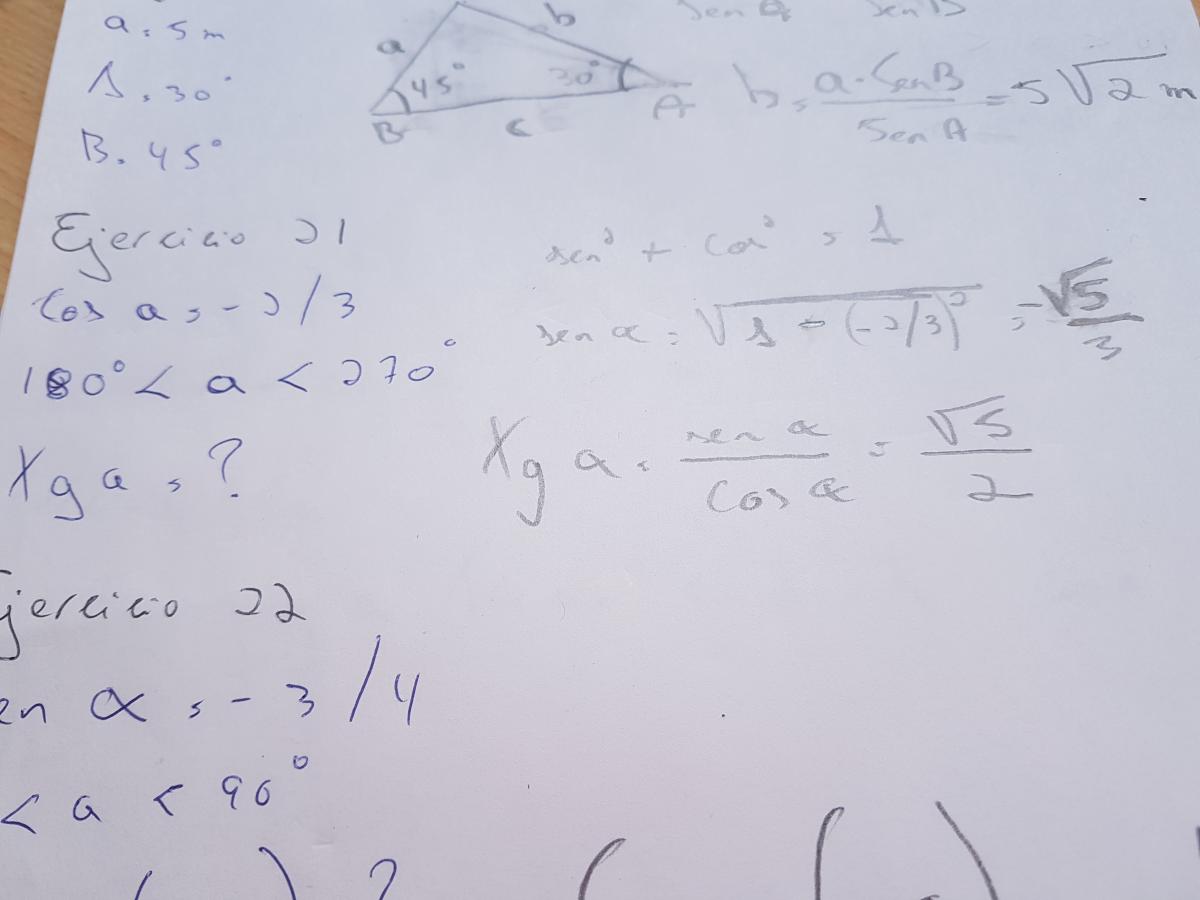 a = 5 m
A = 30°
B = 45°
a b
45° 30°
B c A
sen A sen B
b = a · Sen B / Sen A = 5 √2 m
Ejercicio 21
Cos a = -2/3
180° < a < 270°
Tg a = ?
sen² + cos² = 1
sen α = √1 - (-2/3)² = -√5 / 3
Tg α = sen α / cos α = √5 / 2
jercicio 22
en α = -3/4
< a < 90°
( ) ?